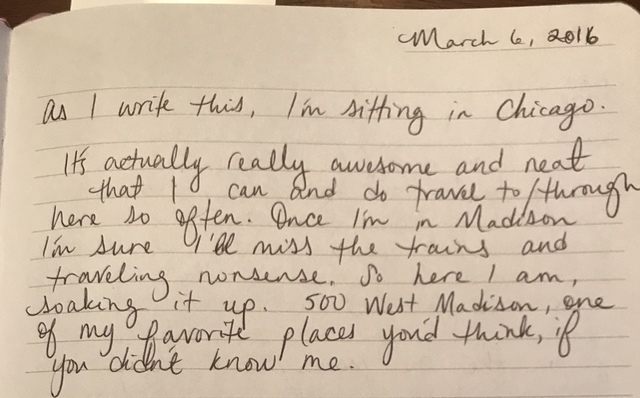 March 6, 2016
As I write this, I'm sitting in Chicago.
It's actually really awesome and neat
that I can and do travel to/through
here so often. Once I'm in Madison
I'm sure I'll miss the trains and
traveling nonsense. So here I am,
soaking it up. 500 West Madison, one
of my favorite places you'd think, if
you didn't know me.